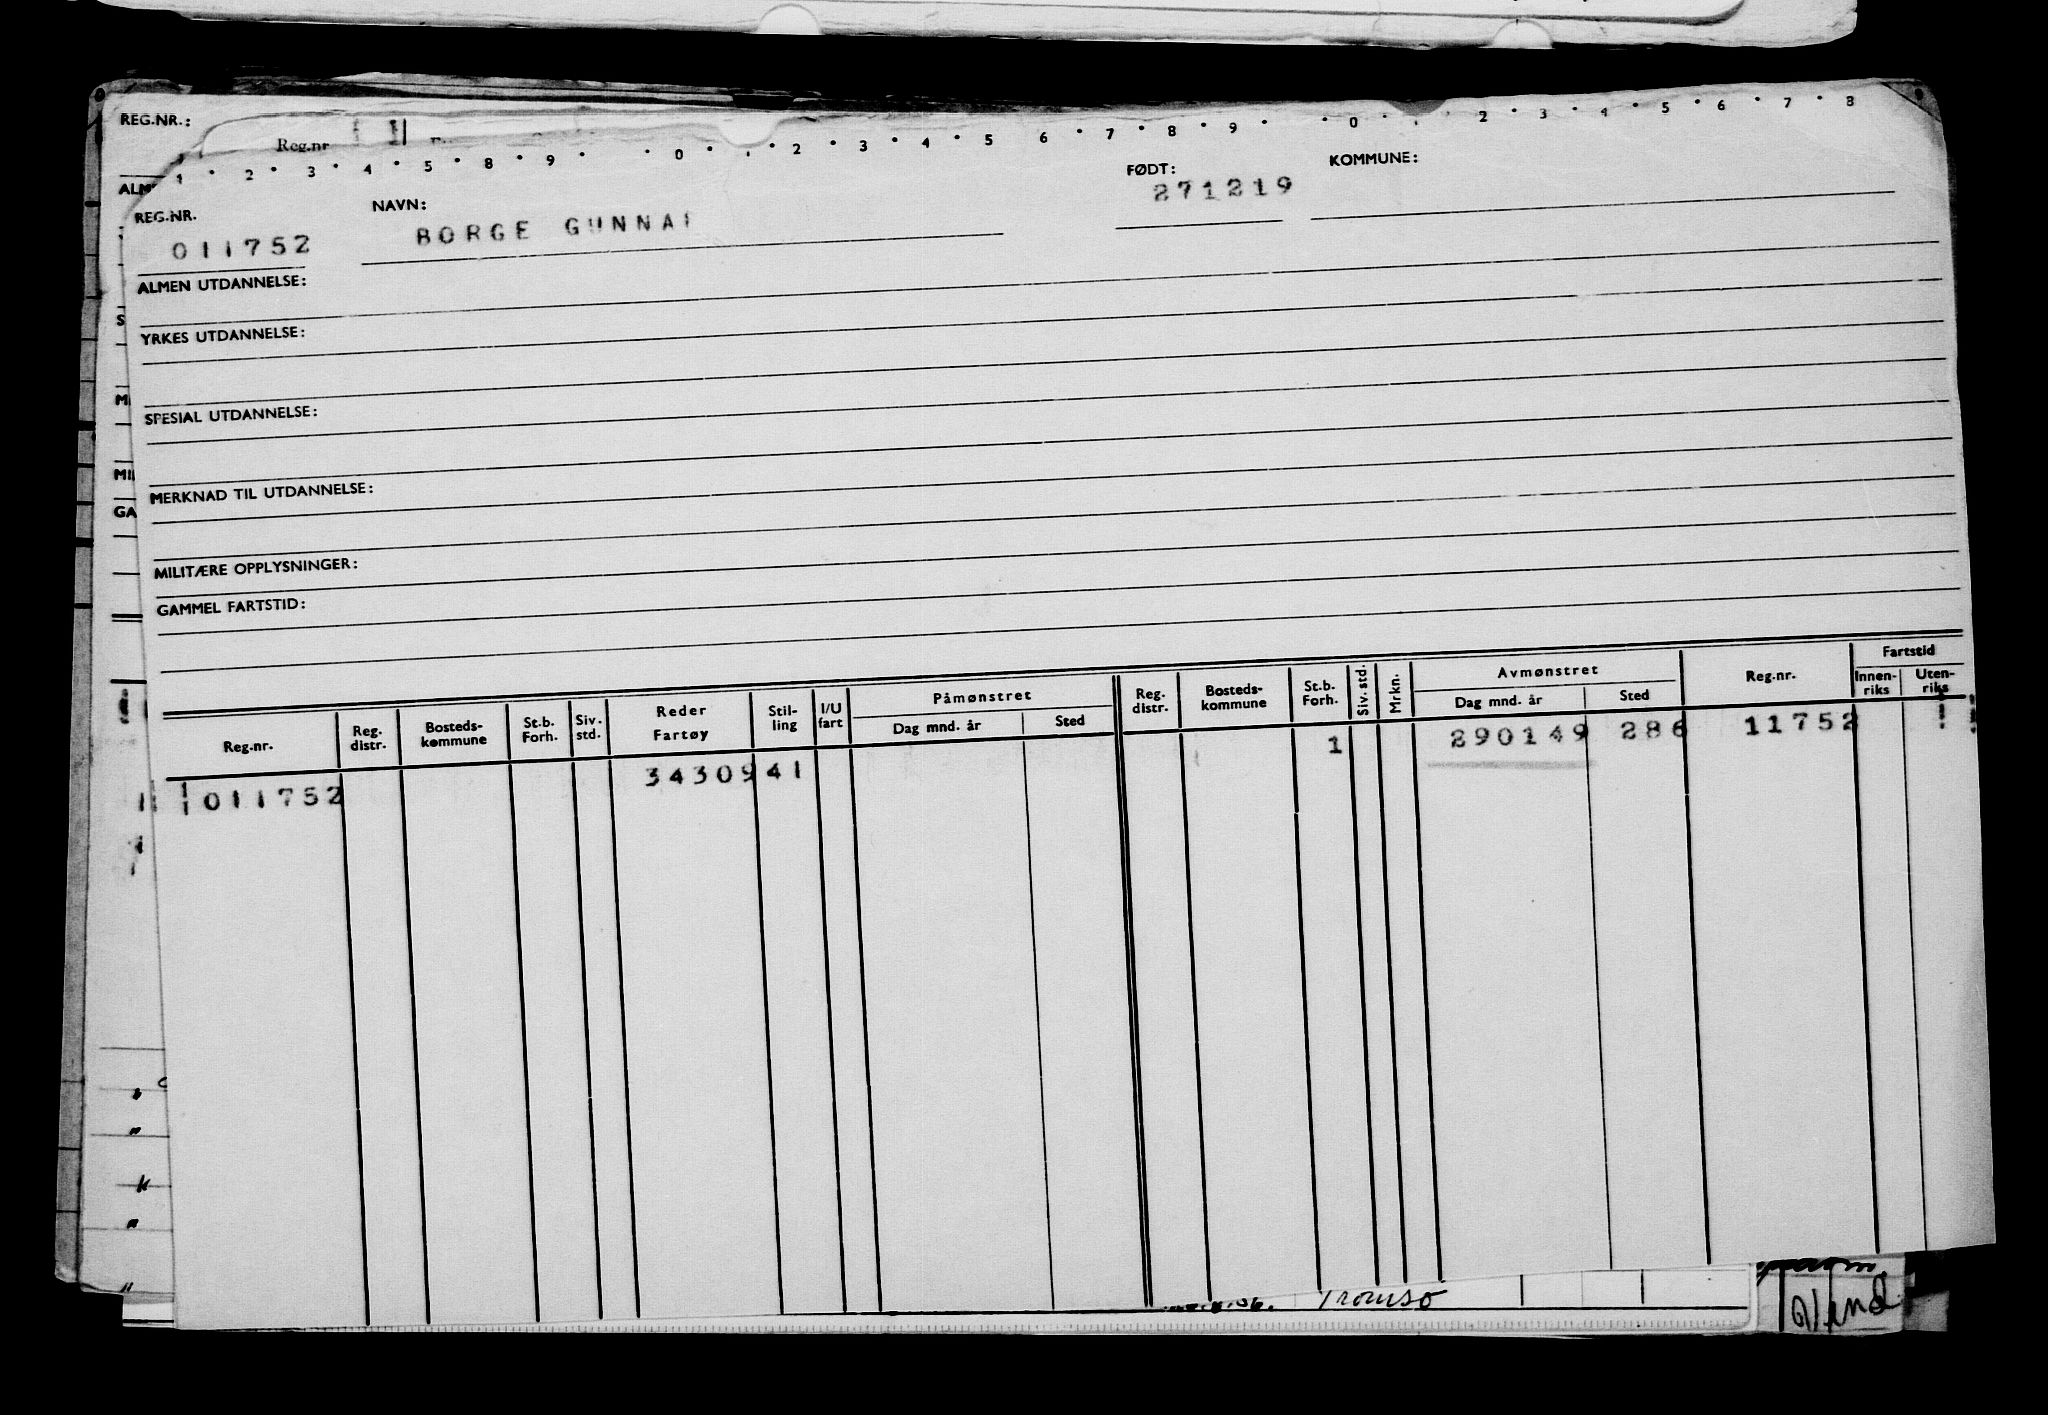 REG.NR.:
Reg.nr
1 2 3 4 5 8 9 0 2 3 4 5 6 7 8 9 0 2 3 4 5 6 7 8
ALM
REG.NR. NAVN: FØDT: KOMMUNE:
011752 BORGE GUNNA 271219
ALMEN UTDANNELSE:
YRKES UTDANNELSE:
SPESIAL UTDANNELSE:
MERKNAD TIL UTDANNELSE:
MILITÆRE OPPLYSNINGER:
GAMMEL FARTSTID:
Reg.nr. Reg. distr. Bosteds-kommune St.b. Forh. Siv. std. Reder Fartøy Stil-ling I/U fart Påmønstret Dag mnd. år Sted Reg. distr. Bosteds-kommune St.b. Forh. Siv. std. Mrkn. Avmønstret Dag mnd. år Sted Reg.nr. Fartstid Innen-riks Uten-riks
011752 3430941 1 290149 286 11752
Tromsø